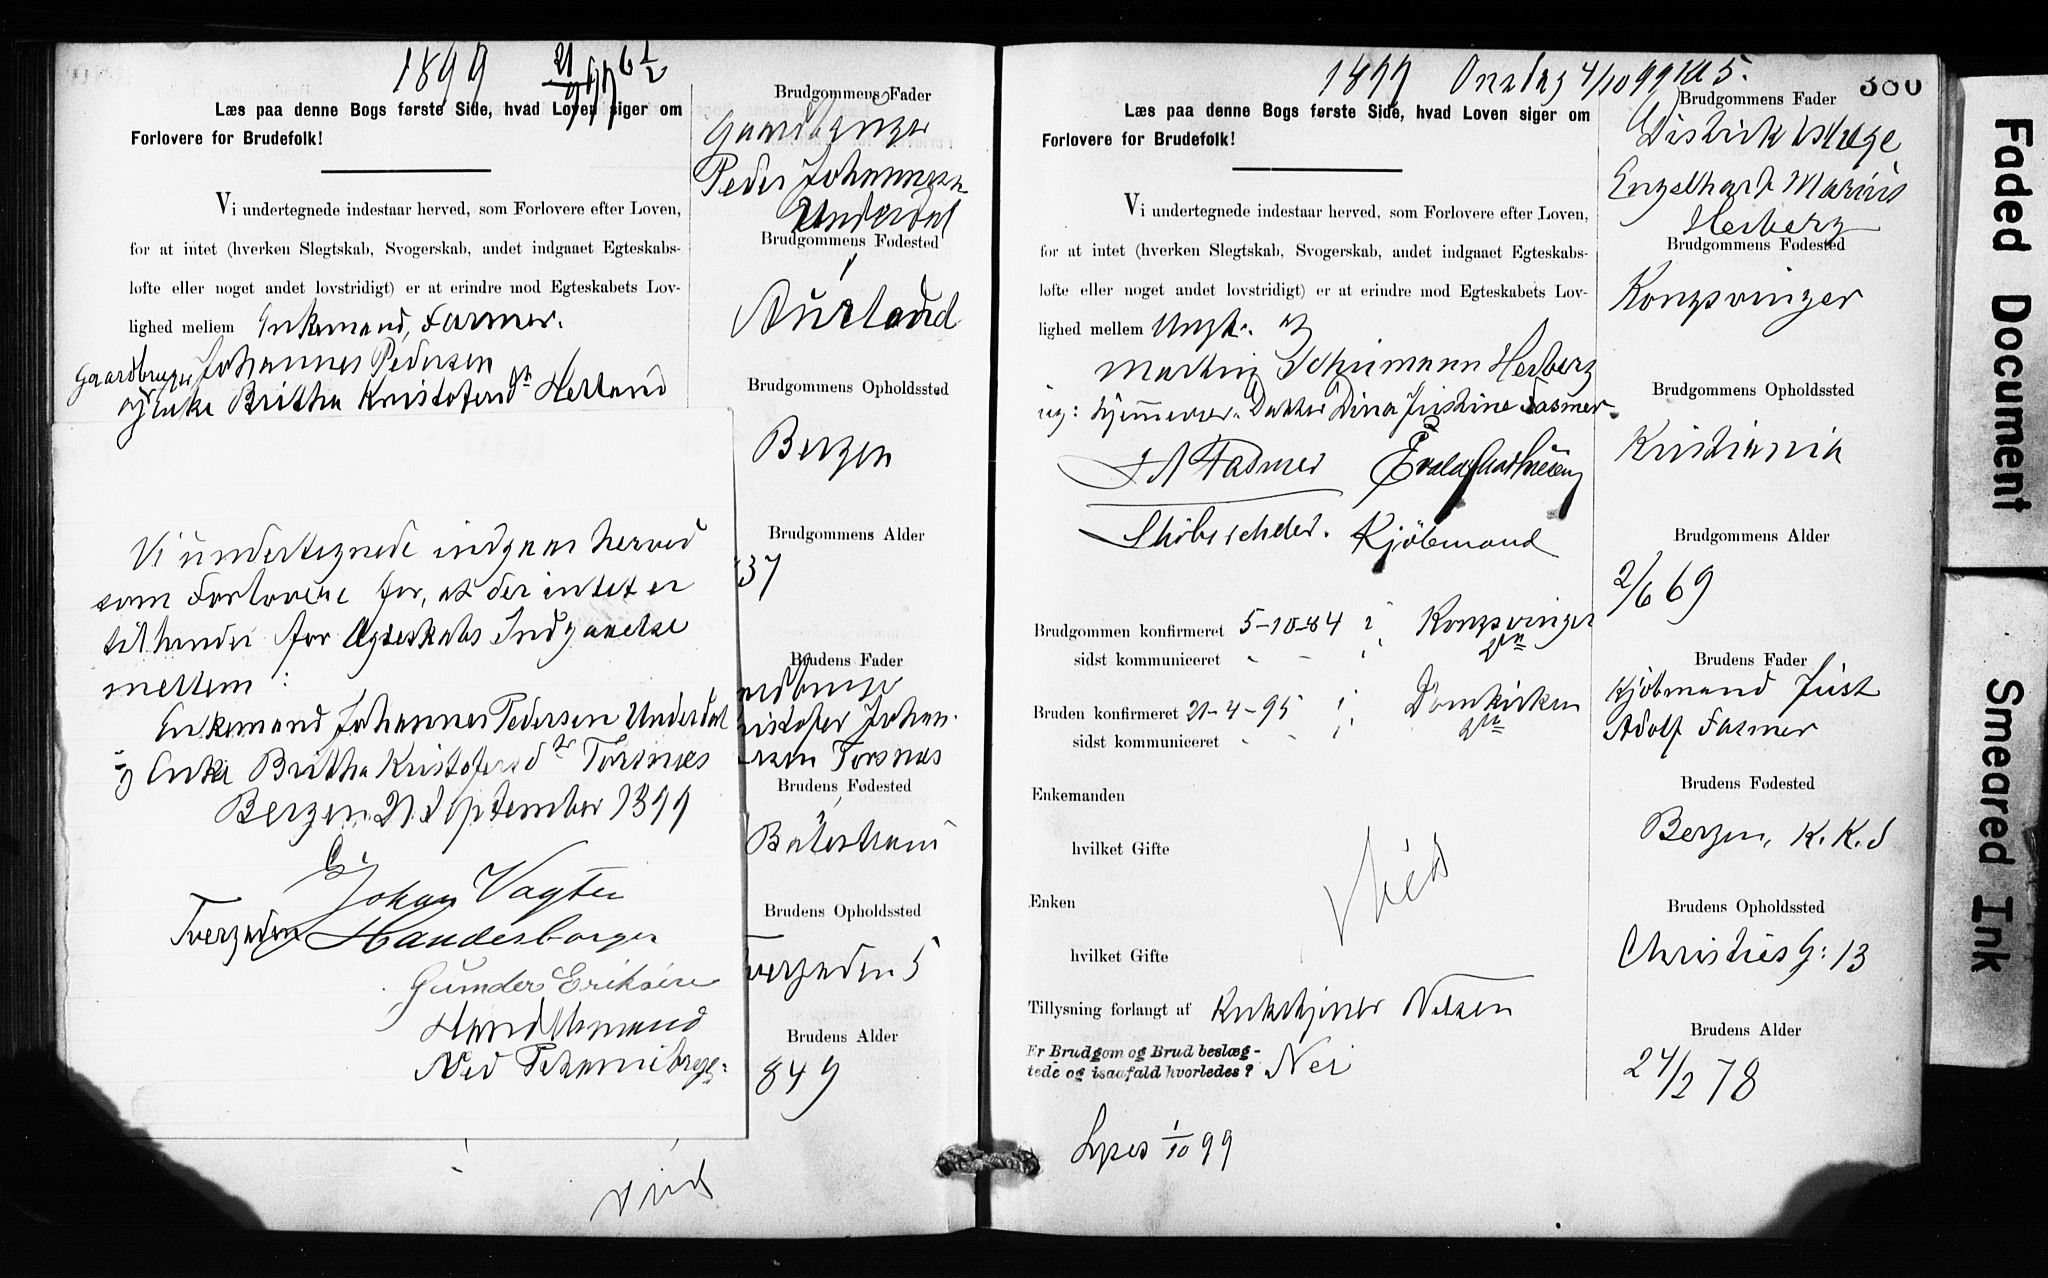 1899 21/9 99 6 1/2
Læs paa denne Bogs første Side, hvad Loven siger om
Forlovere for Brudefolk!
Vi undertegnede indestaar herved, som Forlovere efter Loven,
for at intet (hverken Slegtskab, Svogerskab, andet indgaaet Egteskabs-
løfte eller noget andet lovstridigt) er at erindre mod Egteskabets Lov-
lighed mellem Enkemand, Farmer.
Gaardbruger Johannes Pedersen
og Enke Britha Kristofersdtr Helland
Vi undertegnede indgaar herved
som Forlovere for, at der intet er
til hinder for Ægteskabs Indgaaelse
mellem :
Enkemand Johannes Pedersen Underdal
og Enke Britha Kristofersdtr Torsnæs
Bergen 21 September 1899
Johan Vagter
Tvergaden
Gunder Eriksen
Ved
Brudgommens Fader
Gaardbruger
Peder Johannessen
Underdal
Brudgommens Fødested
Aurland
Brudgommens Opholdssted
Bergen
Brudgommens Alder
37
Brudens Fader
ardbruger
ristofer Johan-
Torsnæs
Brudens Fødested
Brudens Opholdssted
vergaden 5
Brudens Alder
849
Vied
1899 Onsdag 4/10 99 Kl 5.
380
Læs paa denne Bogs første Side, hvad Loven siger om
Forlovere for Brudefolk!
Vi undertegnede indestaar herved, som Forlovere efter Loven,
for at intet (hverken Slegtskab, Svogerskab, andet indgaaet Egteskabs-
løfte eller noget andet lovstridigt) er at erindre mod Egteskabets Lov-
lighed mellem Ungk.
Martin Schumann Herberg
og: Hjemmevær. Datter Dina Justine Fasmer.
J A Fasmer
Skibsreder. Kjøbmand
Brudgommen konfirmeret 5-10-84 i Kongsvinger
sidst kommuniceret " - i "
Bruden konfirmeret 21-4-95 i Domkirken
sidst kommuniceret " - i "
Enkemanden
hvilket Gifte
Enken
hvilket Gifte
Vied
Tillysning forlangt af Kirketjener Nilsen
Er Brudgom og Brud beslæg-
tede og isaafald hvorledes? Nei
Lyses 1/10 99
Brudgommens Fader
Distriktslæge
Engelhart Marius
Herberg
Brudgommens Fødested
Kongsvinger
Brudgommens Opholdssted
Kristiania
Brudgommens Alder
2/6 69
Brudens Fader
Kjøbmand Just
Adolf Fasmer
Brudens Fødested
Bergen, K. K. s
Brudens Opholdssted
Christies G: 13
Brudens Alder
24/2 78
Faded Document
Smeared Ink